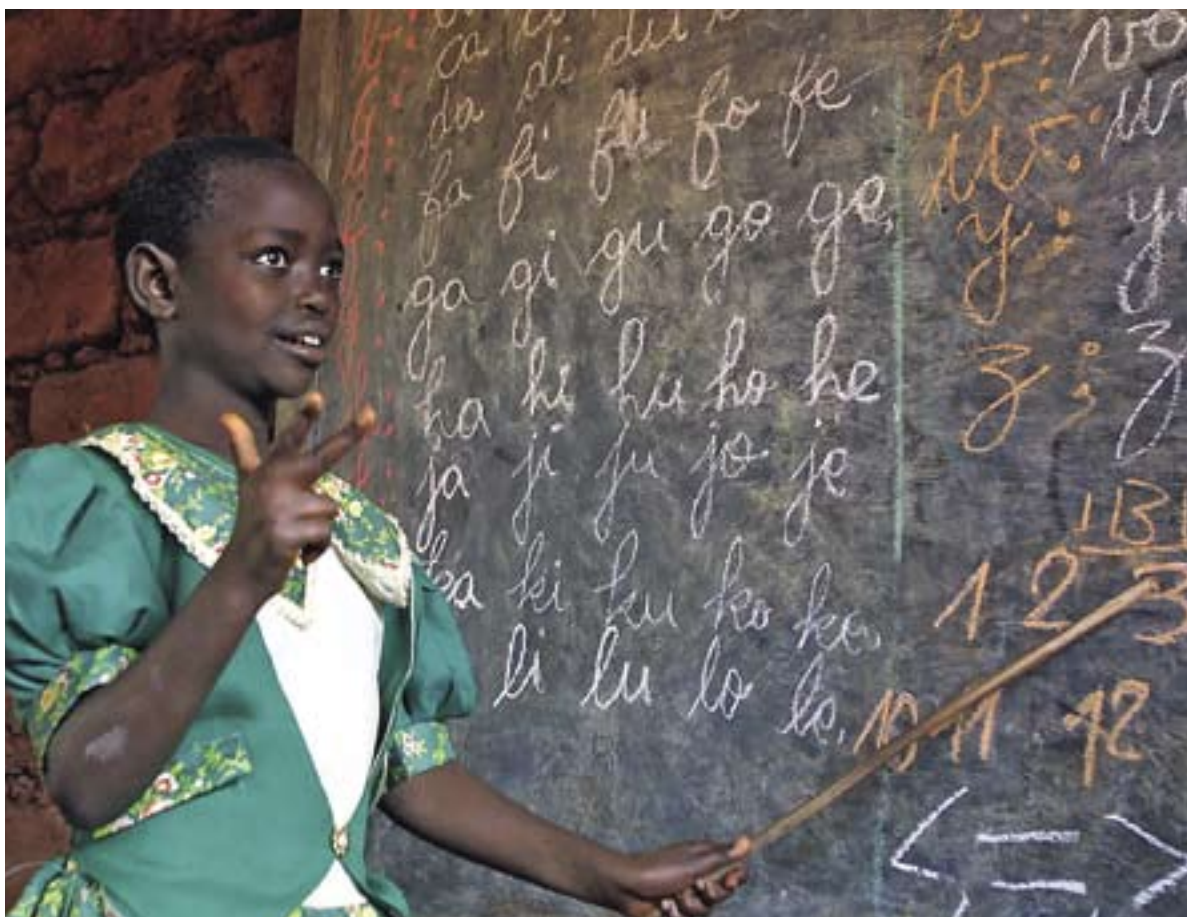 ca
da di du
fa fi fu fo fe
ga gi gu go ge,
ha hi hu ho he
ja ji ju jo je
ka ki ku ko ke,
li lu lo le,
v: vo
w:
y: y
z: z
1 2 3
10 11 12
< = >